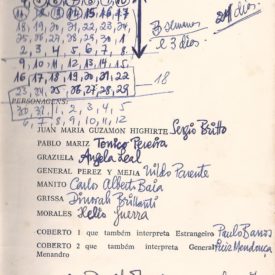 11, 12, 13, 14, 15, 16, 17
18, 19, 20, 21, 22, 23, 24
25, 26, 27, 28, 29, 30, 1
2, 3, 4, 5, 6, 7, 8
9, 10, 11, 12, 13, 14, 15
16, 17, 18, 19, 20, 21, 22
23, 24, 25, 26, 27, 28, 29
3 semanas e 3 dias
24 dias
18
PERSONAGENS:
30, 31, 1, 2, 3, 4, 5
6, 7, 8, 9, 10, 11, 12
JUAN MARIA GUZAMON HIGHIRTE Sergio Britto
PABLO MARIZ Tonico Pereira
GRAZUELA Angela Leal
GENERAL PEREZ Y MEJIA Nildo Parente
MANITO Carlos Alberto Baía
GRISSA Dinorah Brillanti
MORALES Hello Guerra
COBERTO 1 que também interpreta Estrangeiro Paulo Barros
COBERTO 2 que também interpreta General Ruiz Mendonça
Menandro